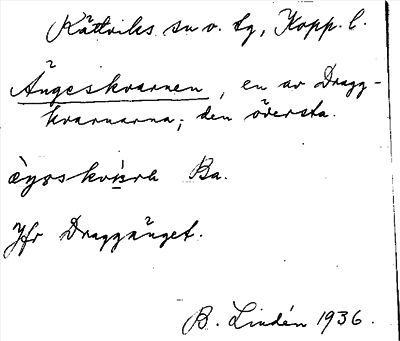 Rättviks sn o. tg, Kopp. l.
Ängeskvarnen, en av Dragg-
kvarnarna; den översta.
Ba.
Jfr Draggänget.
B. Lindén 1936.